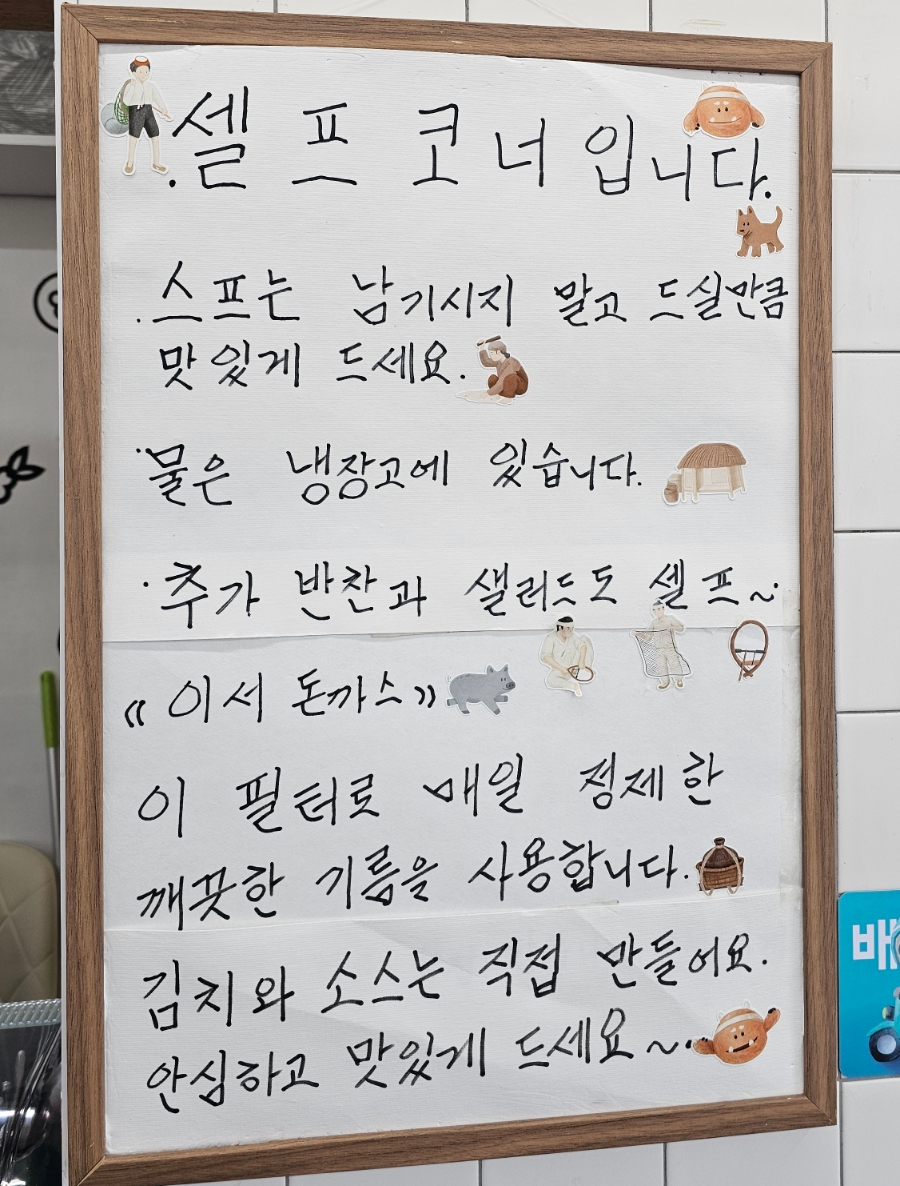 셀프 코너입니다.
스프는 남기시지 말고 드실만큼
맛있게 드세요.
물은 냉장고에 있습니다.
추가 반찬과 샐러드도 셀프~
《이서 돈까스》
이 필터로 매일 정제한
깨끗한 기름을 사용합니다.
김치와 소스는 직접 만들어요.
안심하고 맛있게 드세요~
배